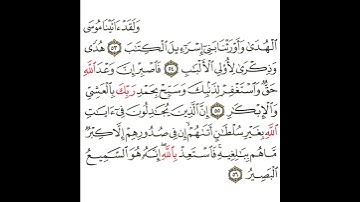 وَلَقَدْ ءَاتَيْنَا مُوسَى
الْهُدَىٰ وَأَوْرَثْنَا بَنِىٓ إِسْرَٰٓءِيلَ الْكِتَٰبَ ٥٣ هُدًى
وَذِكْرَىٰ لِأُو۟لِى الْأَلْبَٰبِ ٥٤ فَاصْبِرْ إِنَّ وَعْدَ اللَّهِ
حَقٌّ وَاسْتَغْفِرْ لِذَنۢبِكَ وَسَبِّحْ بِحَمْدِ رَبِّكَ بِالْعَشِىِّ
وَالْإِبْكَٰرِ ٥٥ إِنَّ الَّذِينَ يُجَٰدِلُونَ فِىٓ ءَايَٰتِ
اللَّهِ بِغَيْرِ سُلْطَٰنٍ أَتَىٰهُمْ إِن فِى صُدُورِهِمْ إِلَّا كِبْرٌ
مَّا هُم بِبَٰلِغِيهِ فَاسْتَعِذْ بِاللَّهِ إِنَّهُۥ هُوَ السَّمِيعُ
الْبَصِيرُ ٥٦